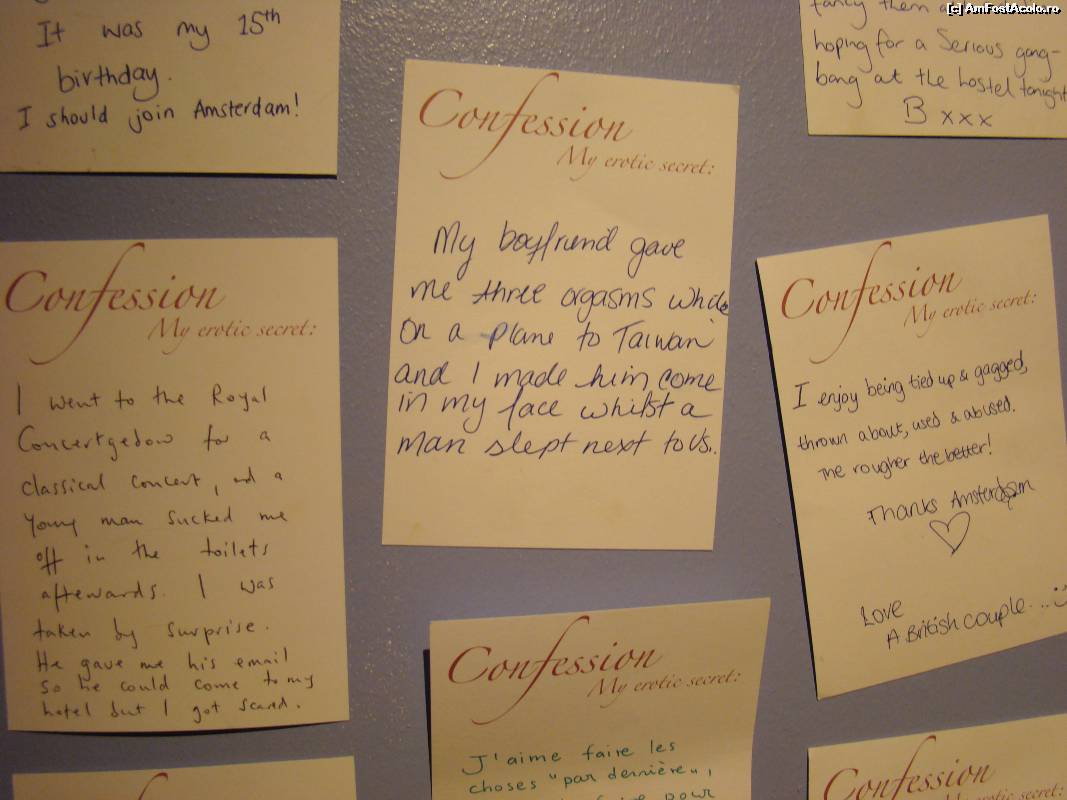 [c] AmFostAcolo.ro
It was my 15th
birthday.
I should join Amsterdam!
fancy them
hoping for a serious gang-
bang at the hostel tonight
B xxx
Confession
My erotic secret:
My boyfriend gave
me three orgasms while
on a plane to Taiwan
and I made him come
in my face whilst a
man slept next to us.
Confession
My erotic secret:
I went to the Royal
Concertgebow for a
classical concert, and a
young man sucked me
off in the toilets
afterwards. I was
taken by surprise.
He gave me his email
so he could come to my
hotel but I got scared.
Confession
My erotic secret:
I enjoy being tied up & gagged,
thrown about, used & abused.
The rougher the better!
Thanks Amsterdam
Love
A British couple...
Confession
My erotic secret:
J'aime faire les
choses "par dernière",
faire pour
Confession
My erotic secret: